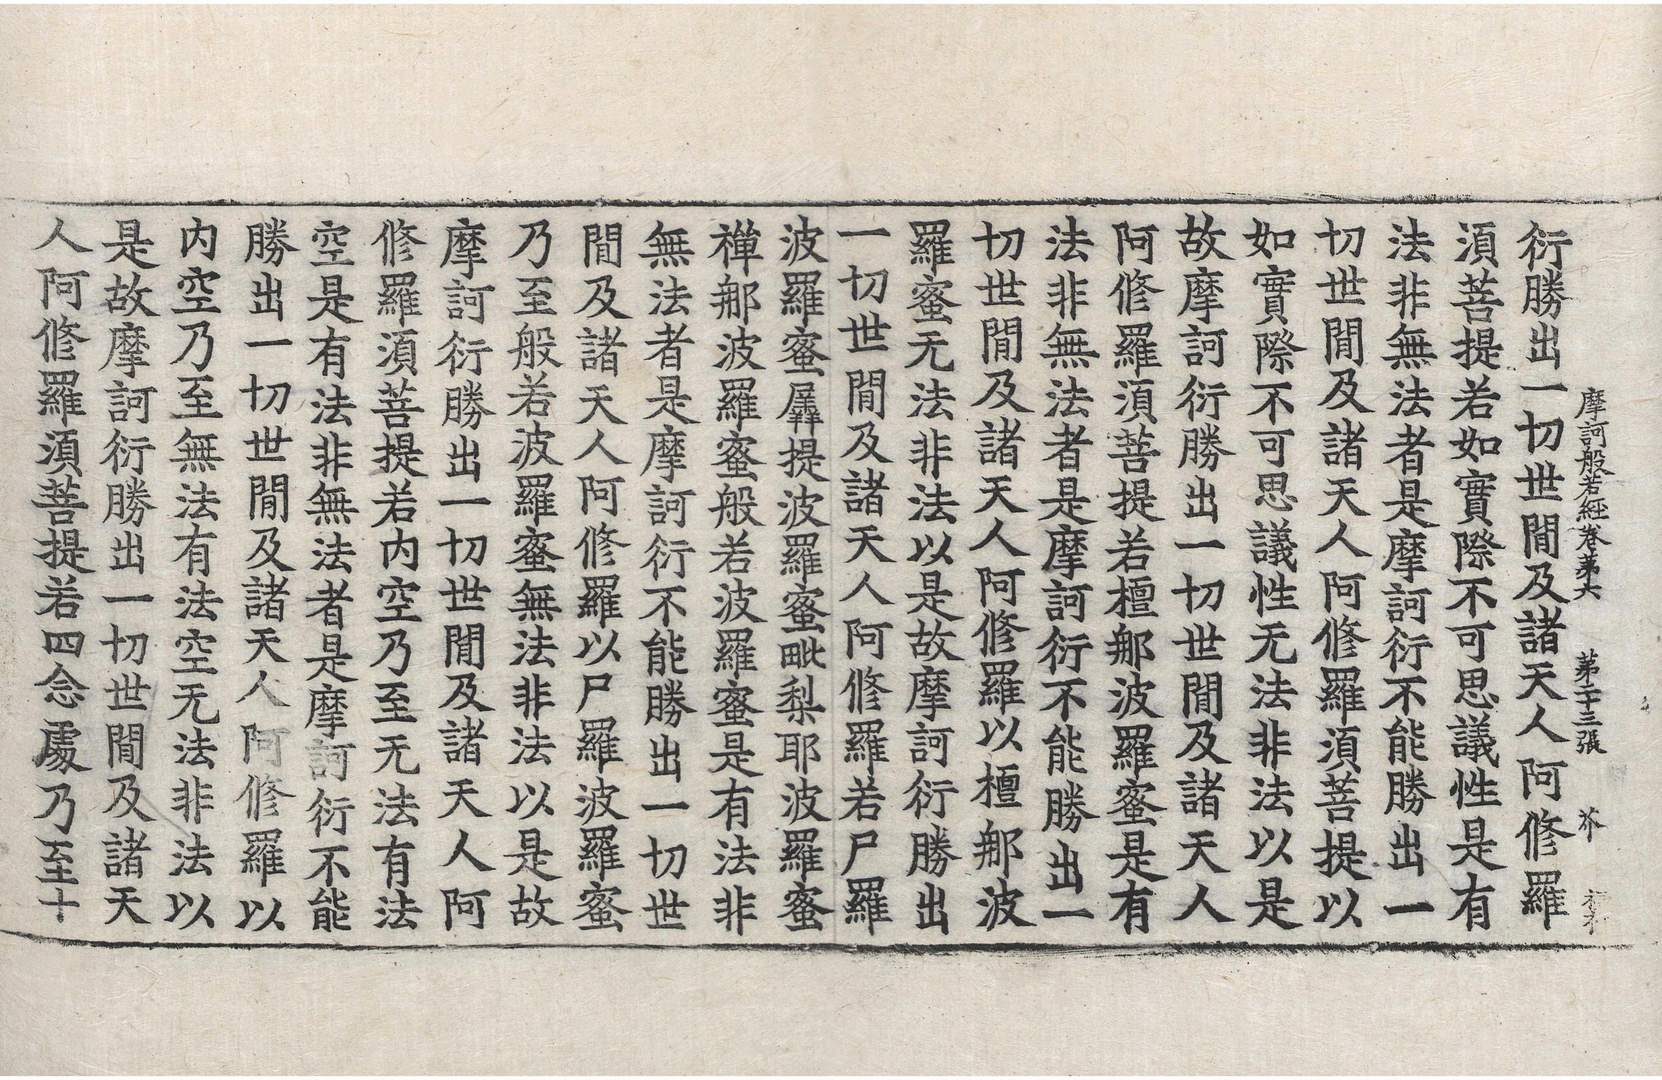 摩訶般若經卷第六　第二十三張　芥
衍勝出一切世閒及諸天人阿修羅
須菩提若如實際不可思議性是有
法非無法者是摩訶衍不能勝出一
切世閒及諸天人阿修羅須菩提以
如實際不可思議性无法非法以是
故摩訶衍勝出一切世閒及諸天人
阿修羅須菩提若檀那波羅蜜是有
法非無法者是摩訶衍不能勝出一
切世閒及諸天人阿修羅以檀那波
羅蜜无法非法以是故摩訶衍勝出
一切世閒及諸天人阿修羅若尸羅
波羅蜜羼提波羅蜜毗梨耶波羅蜜
禪那波羅蜜般若波羅蜜是有法非
無法者是摩訶衍不能勝出一切世
閒及諸天人阿修羅以尸羅波羅蜜
乃至般若波羅蜜無法非法以是故
摩訶衍勝出一切世閒及諸天人阿
修羅須菩提若内空乃至无法有法
空是有法非無法者是摩訶衍不能
勝出一切世閒及諸天人阿修羅以
内空乃至無法有法空无法非法以
是故摩訶衍勝出一切世閒及諸天
人阿修羅須菩提若四念處乃至十